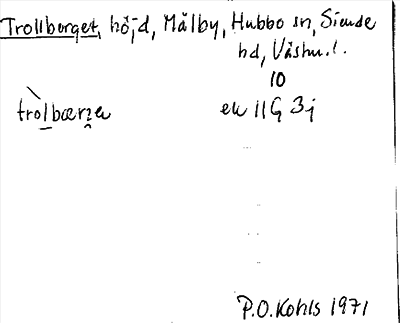 Trollberget, höjd, Målby, Hubbo sn, Siende
hd, Västm.l.
10
tròlbærʒe
ek 11G 3j
P.O. Kohls 1971